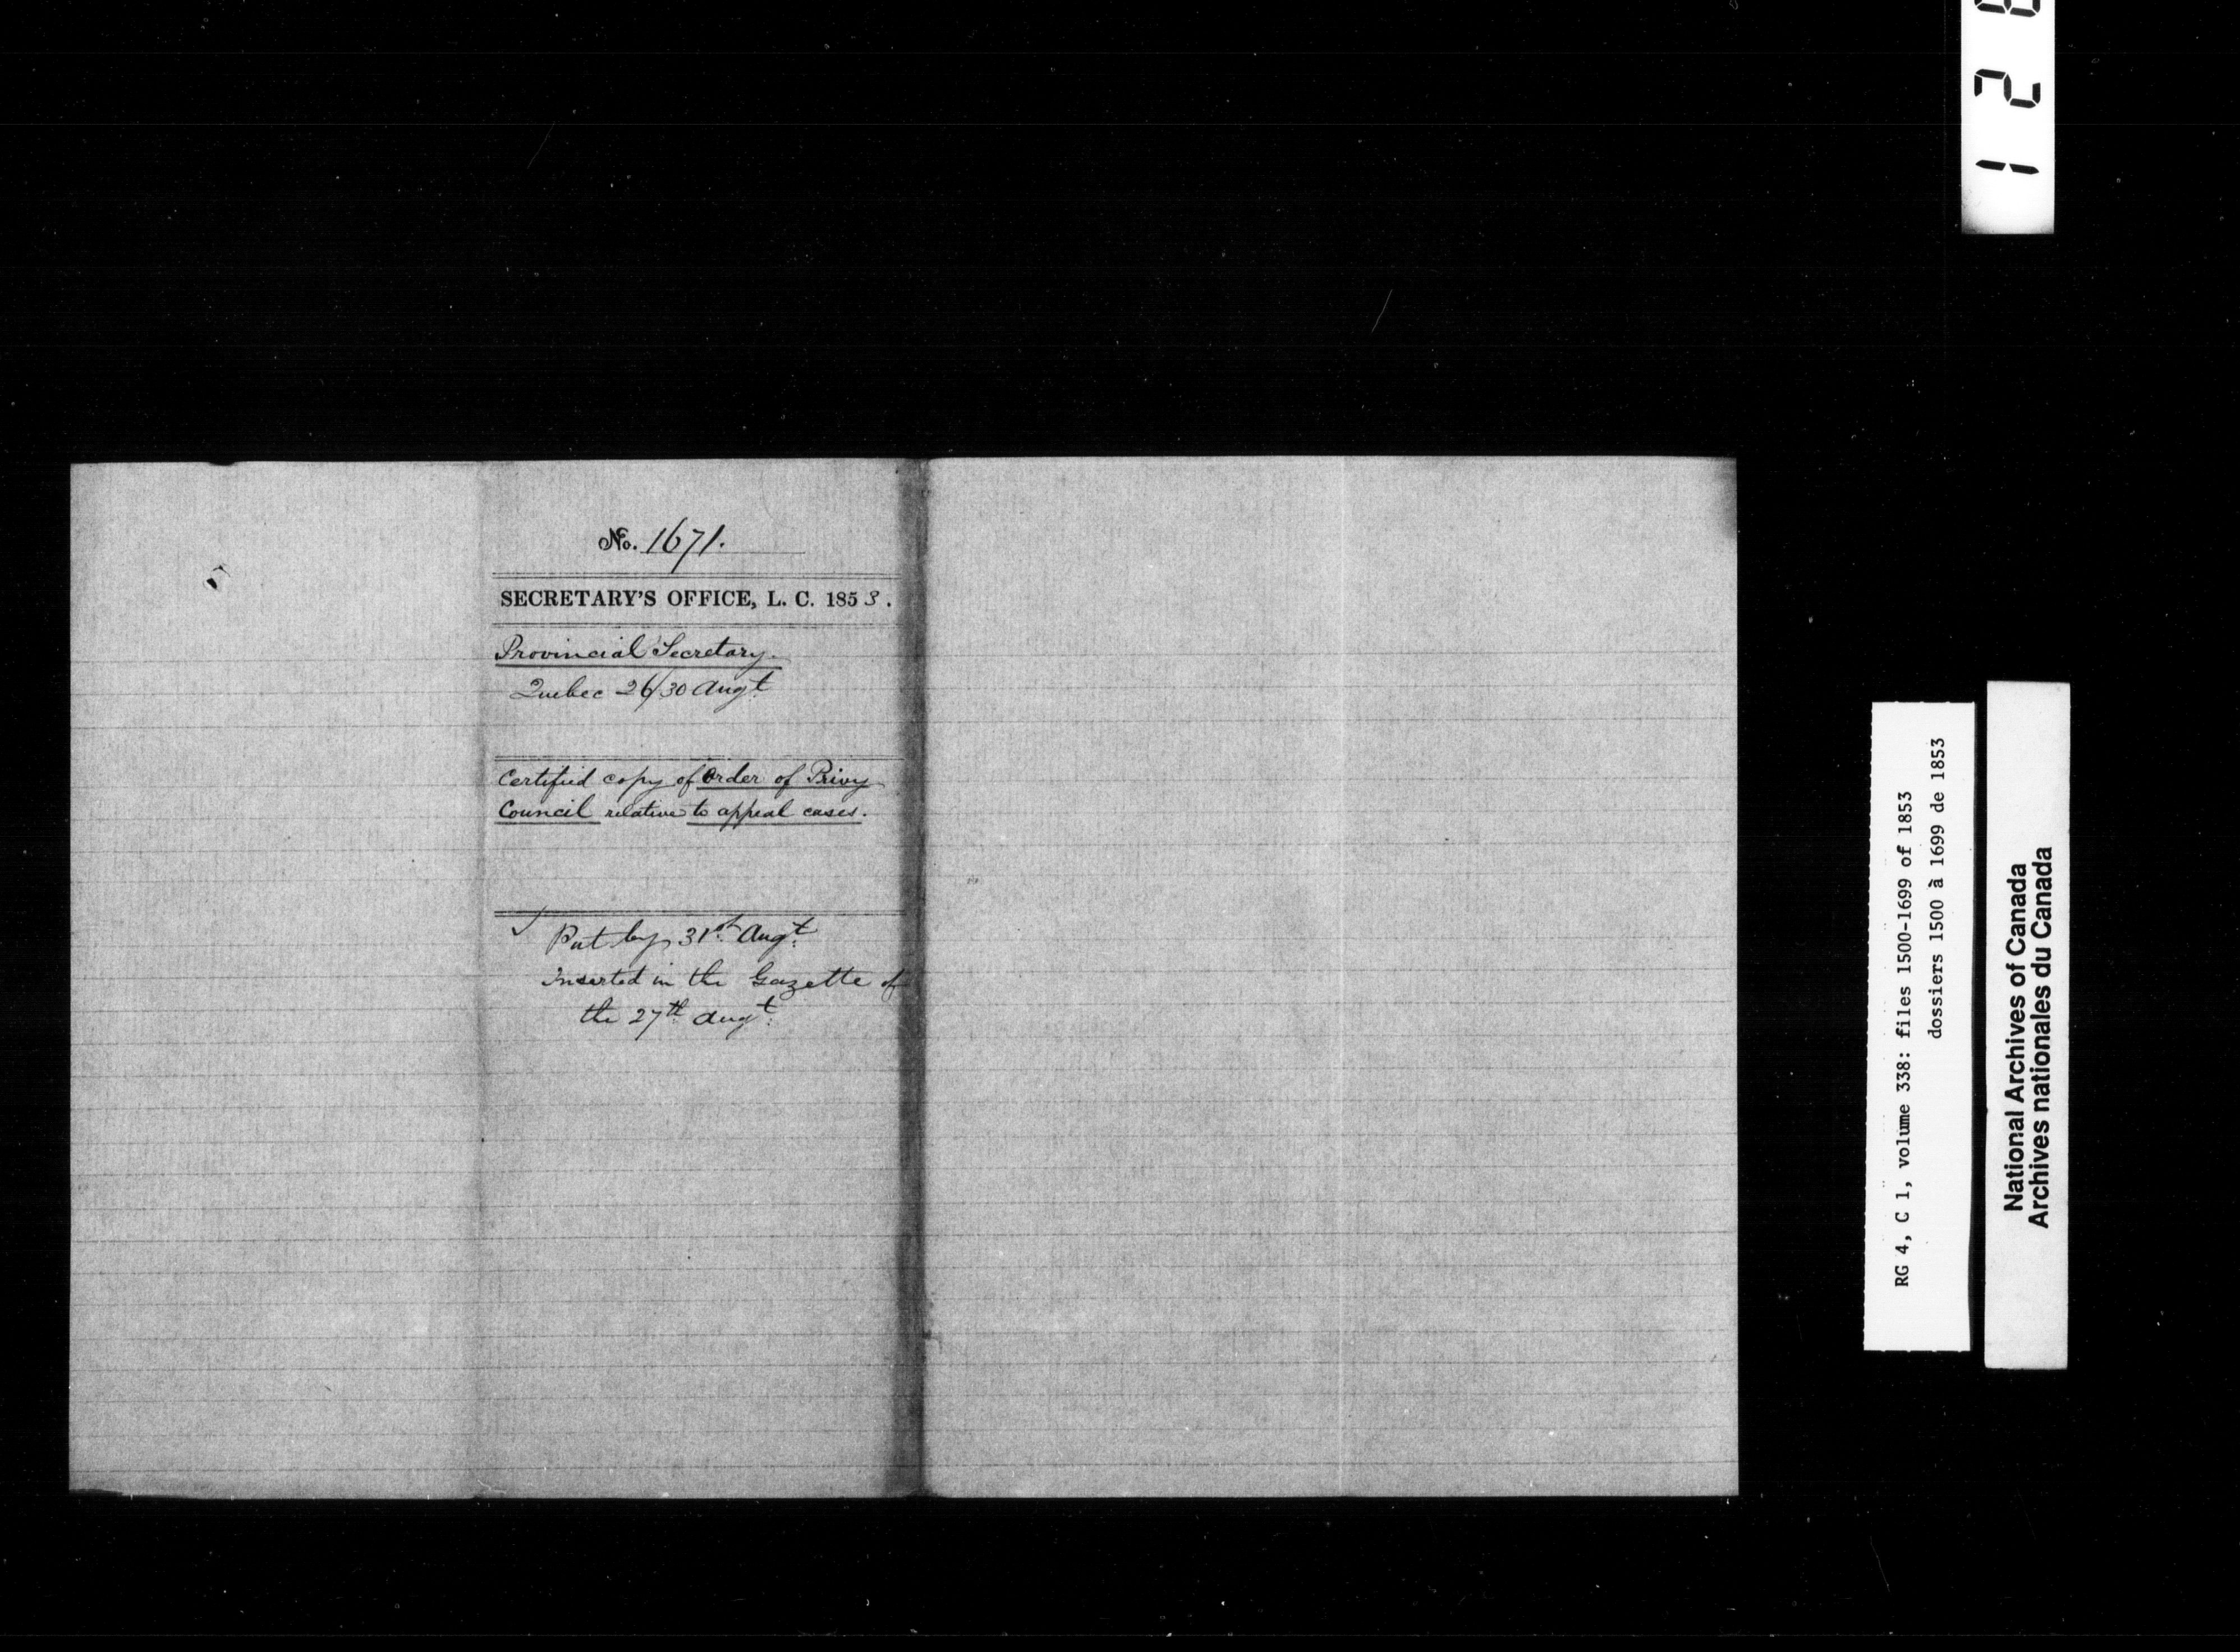 No. 1671.
SECRETARY'S OFFICE, L. C. 1853.
Provincial Secretary.
Quebec 26/30 Augt.
Certified copy of Order of Privy
Council relative to appeal cases.
Put by 31st. Augt.
Inserted in the Gazette of
the 27th. Augt.
RG 4, C 1, volume 338: files 1500-1699 of 1853
dossiers 1500 à 1699 de 1853
National Archives of Canada
Archives nationales du Canada
1 2 8